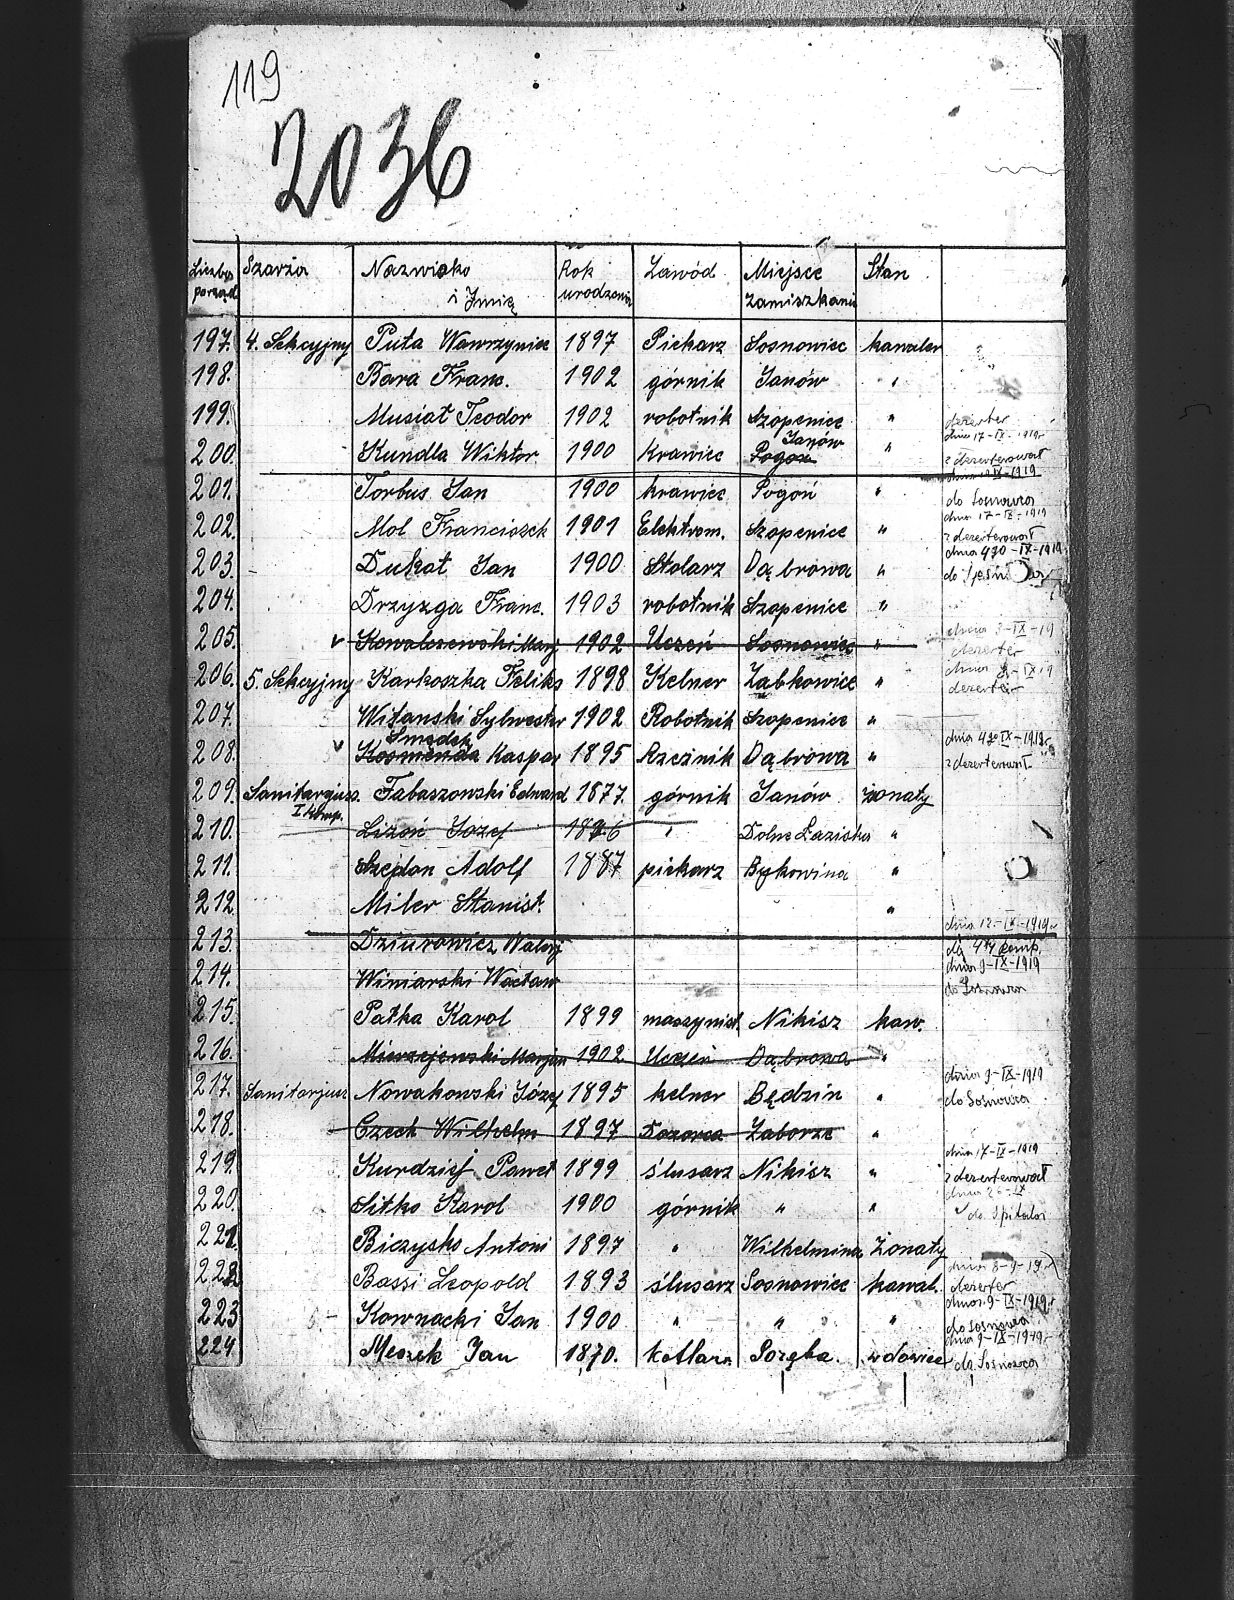 119
2036
Liczba porząd. Szarża Nazwisko i Imię Rok urodzenia Zawód Miejsce zamiszkania Stan
197. 4. Sekcyjny Puta Wawrzyniec 1897 Piekarz Sosnowiec kawaler
198. Bara Franc. 1902 górnik Janów "
199. Musiał Teodor 1902 robotnik Szopenice " dezerter
dnia 17-IX-1919r
200. Kundla Wiktor. 1900 Krawiec Janów Pogoń " zdezerterował
IX-1919
201. Torbus Jan 1900 krawiec Pogoń " do Sosnowca
dnia 17-IX-1919
202. Mol Franciszek 1901 Elektrom. Szopenice " zdezerterował
203. Dukat Jan 1900 Stolarz Dąbrowa " dnia IX-1919 do
204. Drzyzga Franc. 1903 robotnik Szopenice "
205. v Kowalczewski Marj 1902 Uczeń Sosnowiec " dnia 3-IX-19
dezerter
206. 5. Sekcyjny Karkoszka Feliks 1898 Kelner Ząbkowice " dnia IX-19
dezerter
207. Witański Sylwester 1902 Robotnik Szopenice "
208. v Smędek Kosmenda Kaspar 1895 Rzeźnik Dąbrowa " dnia IX-1919r.
zdezerterował
209. Sanitarjusz. Fabaszowski Edward 1877. górnik Janów żonaty
I komp.
210. Lizoń Józef 1896 " Dolne Łaziska "
211. Szejdon Adolf 1887 piekarz Bykowina "
212 Miler Stanisł. "
dnia 12-IX-1919r
213. Dziurowicz Walerj do komp.
214. Winiarski Wacław dnia 9-IX-1919
do Sosnowca
215. Patka Karol 1899 maszynist. Nikisz kaw.
216. Mierzejewski Marjan 1902 Uczeń Dąbrowa "
dnia 9-IX-1919
217. Sanitarjusz Nowakowski Józef 1895 kelner Będzin " do Sosnowca
218. Czech Wilhelm 1897 Dozorca Zaborze "
dnia 17-IX-1919
219. Kurdziej Paweł 1899 ślusarz Nikisz " zdezerterował
220. Sitko Karol 1900 górnik " " do Spitala
221. Biczysko Antoni 1897 " Wilhelmina Żonaty
dnia 8-9-19r
222. Bassi Leopold 1893 ślusarz Sosnowiec kawal. dezerter
dnia 9-IX-1919r
223 Kownacki Jan 1900 " " " do Sosnowca
dnia 9-IX-1919r
224 Meszek Jan 1870. kotlarz Poręba. wdowiec do Sosnowca